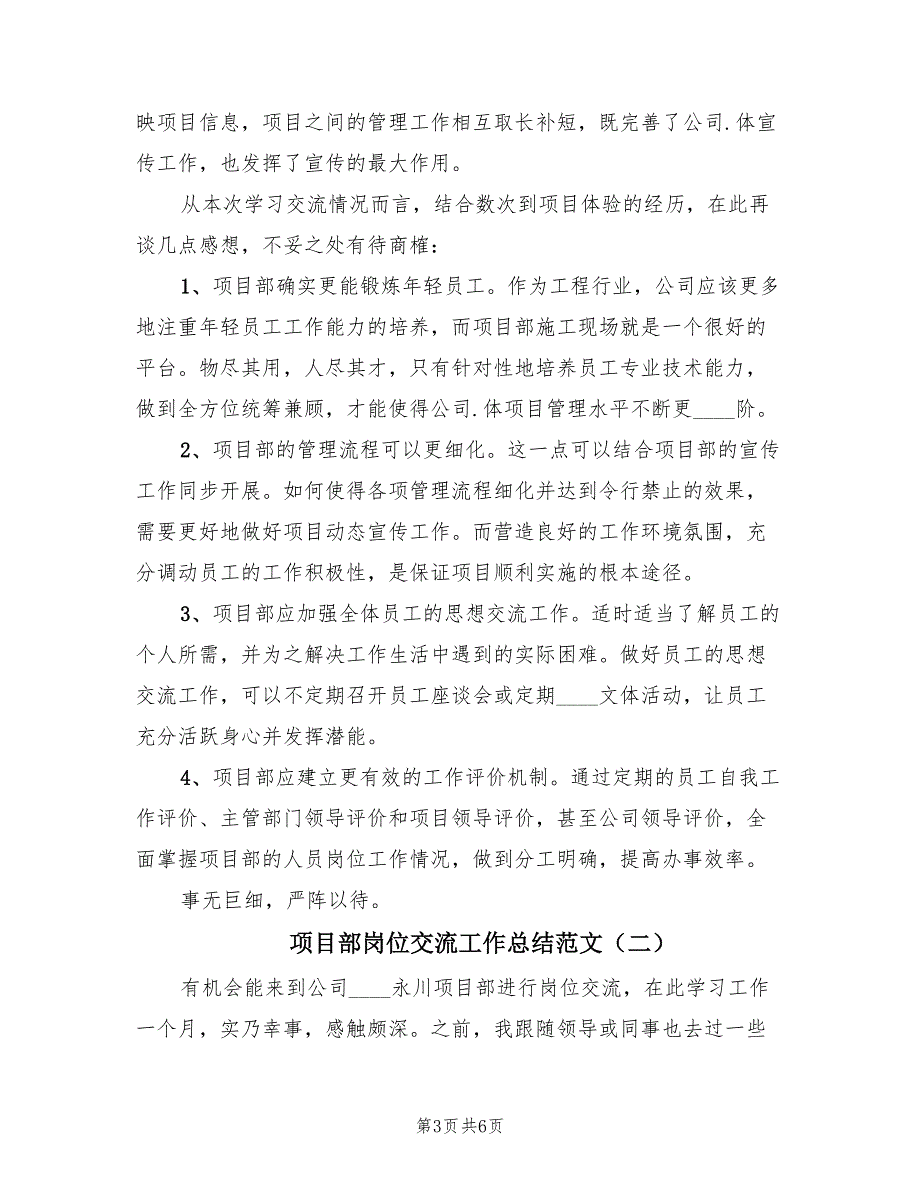 映项目信息，项目之间的管理工作相互取长补短，既完善了公司.体宣
传工作，也发挥了宣传的最大作用。
从本次学习交流情况而言，结合数次到项目体验的经历，在此再
谈几点感想，不妥之处有待商榷：
1、项目部确实更能锻炼年轻员工。作为工程行业，公司应该更多
地注重年轻员工工作能力的培养，而项目部施工现场就是一个很好的
平台。物尽其用，人尽其才，只有针对性地培养员工专业技术能力，
做到全方位统筹兼顾，才能使得公司.体项目管理水平不断更____阶。
2、项目部的管理流程可以更细化。这一点可以结合项目部的宣传
工作同步开展。如何使得各项管理流程细化并达到令行禁止的效果，
需要更好地做好项目动态宣传工作。而营造良好的工作环境氛围，充
分调动员工的工作积极性，是保证项目顺利实施的根本途径。
3、项目部应加强全体员工的思想交流工作。适时适当了解员工的
个人所需，并为之解决工作生活中遇到的实际困难。做好员工的思想
交流工作，可以不定期召开员工座谈会或定期____文体活动，让员工
充分活跃身心并发挥潜能。
4、项目部应建立更有效的工作评价机制。通过定期的员工自我工
作评价、主管部门领导评价和项目领导评价，甚至公司领导评价，全
面掌握项目部的人员岗位工作情况，做到分工明确，提高办事效率。
事无巨细，严阵以待。
项目部岗位交流工作总结范文（二）
有机会能来到公司____永川项目部进行岗位交流，在此学习工作
一个月，实乃幸事，感触颇深。之前，我跟随领导或同事也去过一些
第3页共6页